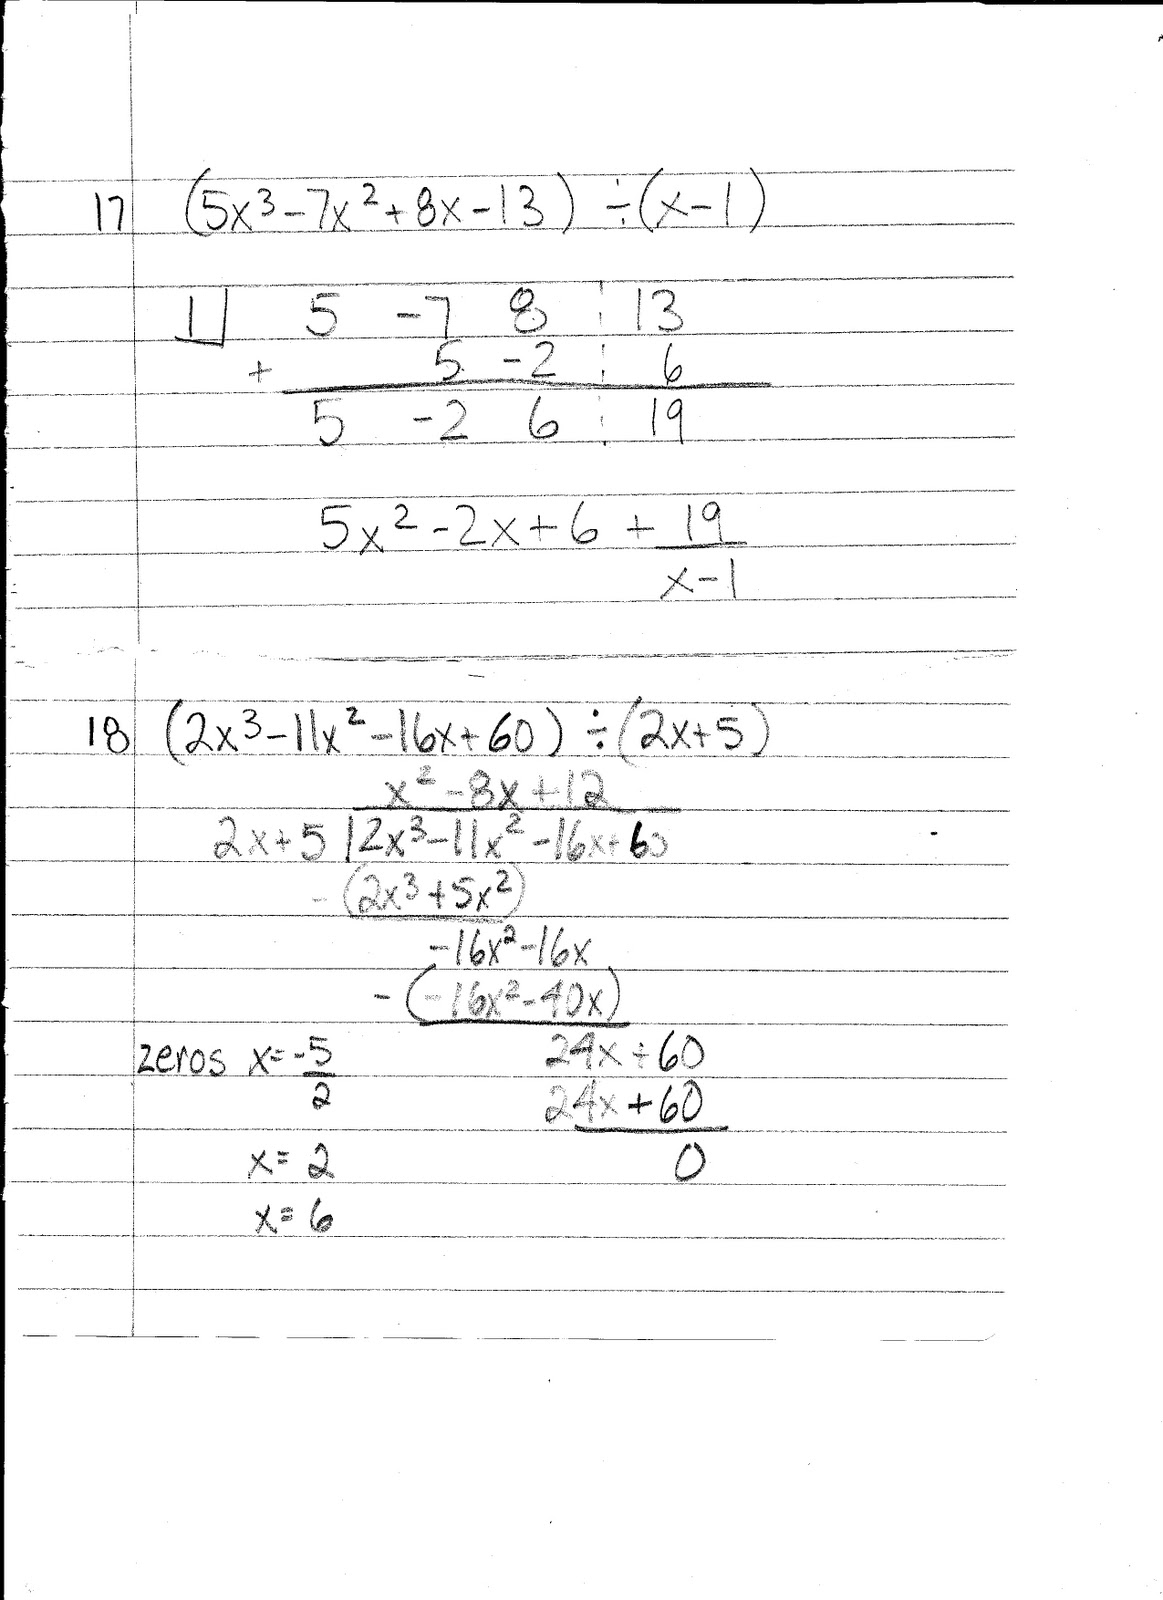 17 (5x³-7x²+8x-13) ÷(x-1)
1 5 -7 8 13
+ 5 -2 6
5 -2 6 19
5x²-2x+6 + 19
x-1
18 (2x³-11x²-16x+60) ÷(2x+5)
x²-8x+12
2x+5 2x³-11x²-16x+60
-(2x³+5x²)
-16x²-16x
-(-16x²-40x)
zeros x=-5 24x+60
2 24x+60
x=2 0
x=6